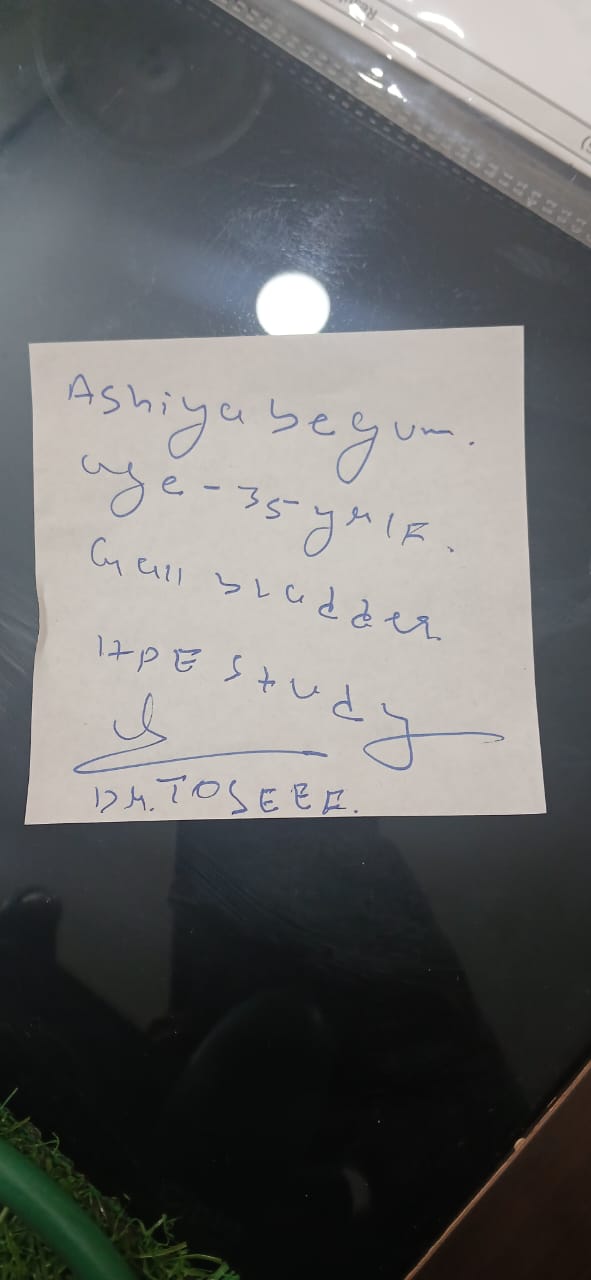 Ashiya begum.
age - 35 yr/F.
Gall bladder
HPE study
Dr. TOSEEF.